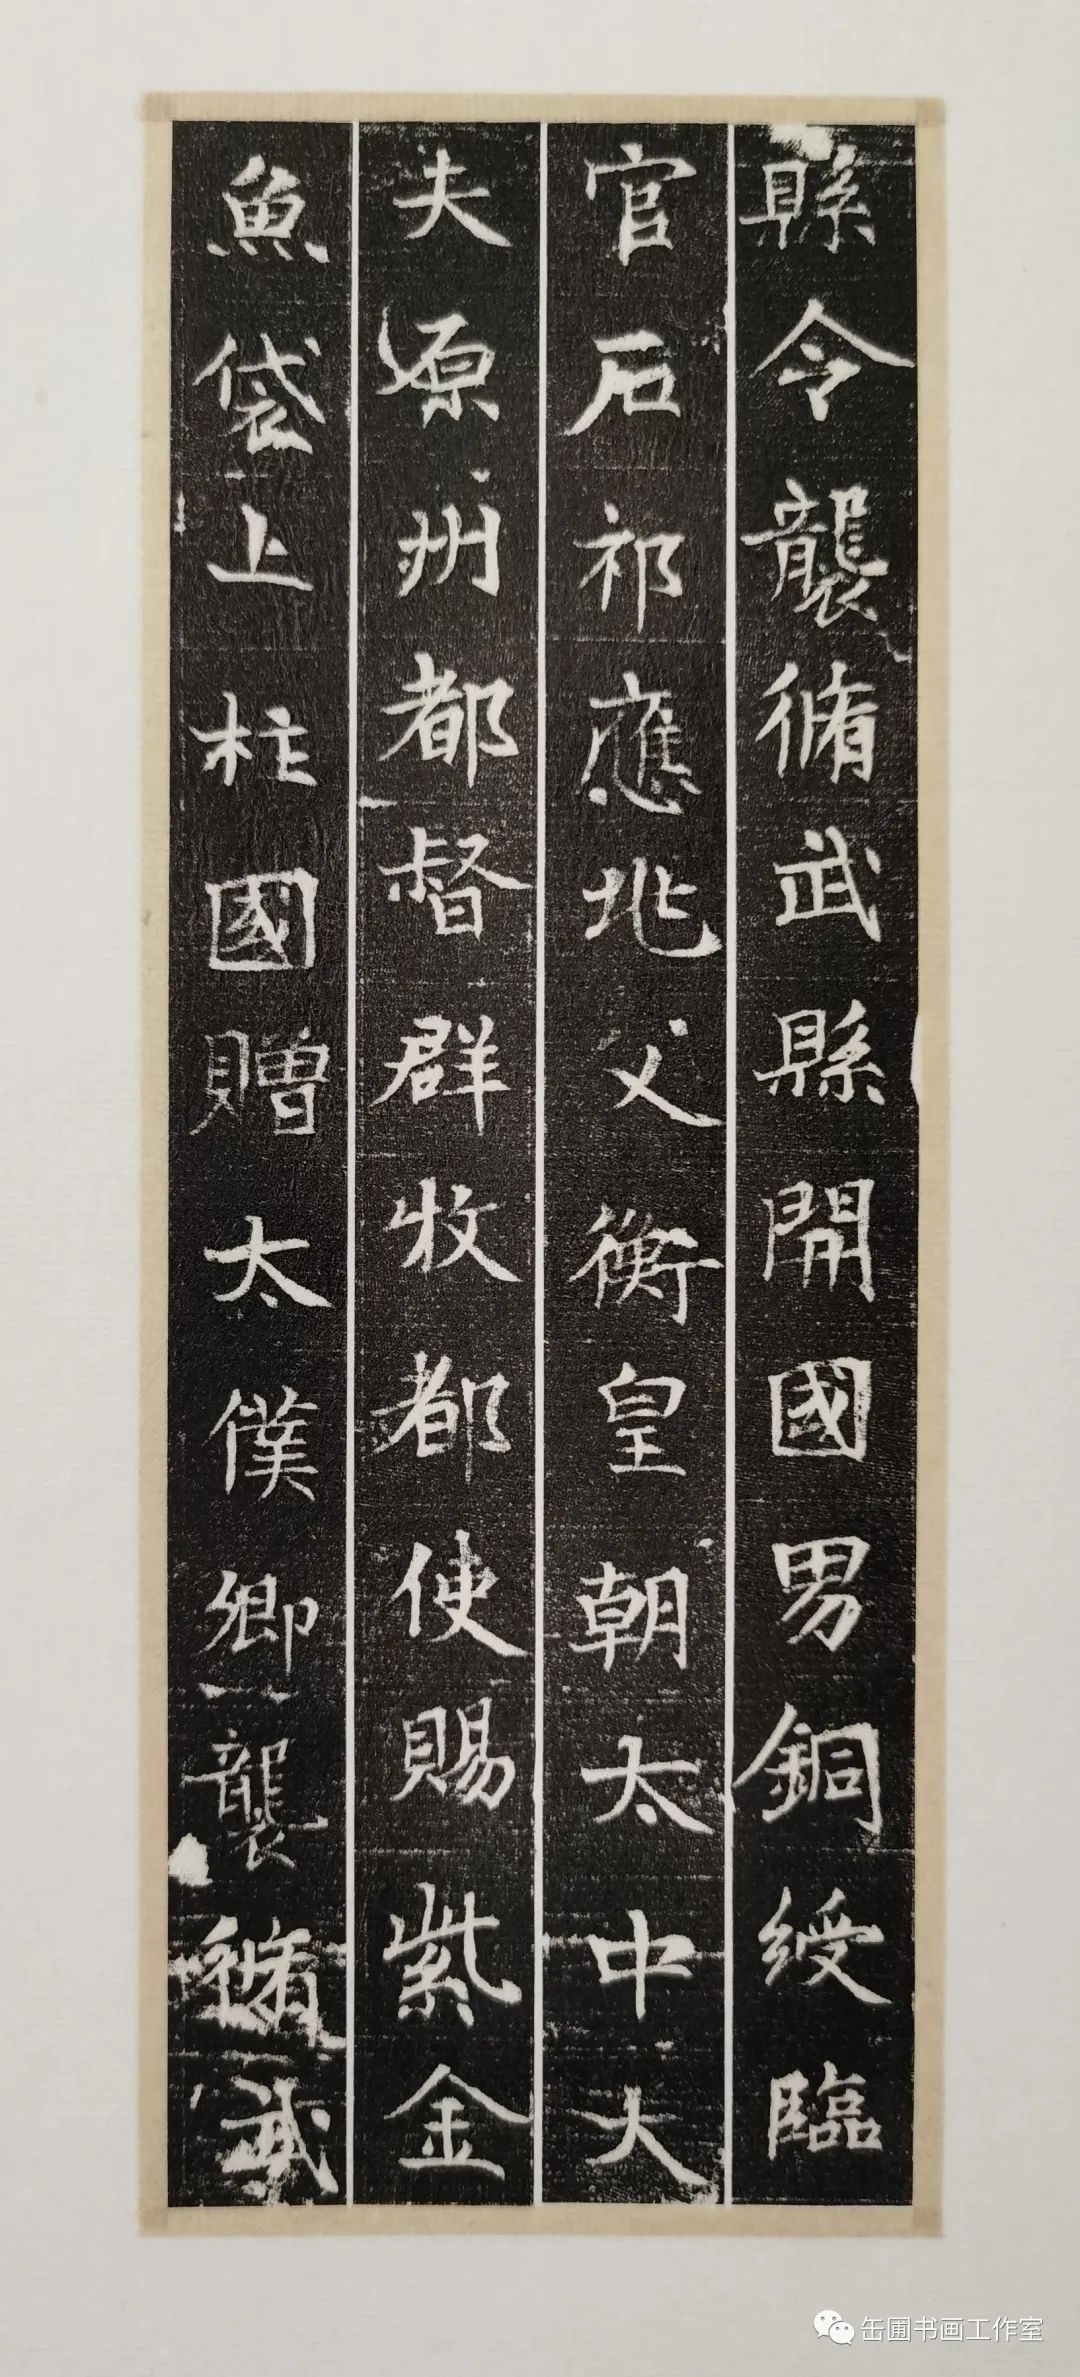 縣令襲脩武縣開國男銅綬臨
官石祁應兆父衡皇朝太中大
夫原州都督群牧都使賜紫金
魚袋上柱國贈太僕卿襲脩武
缶圃书画工作室